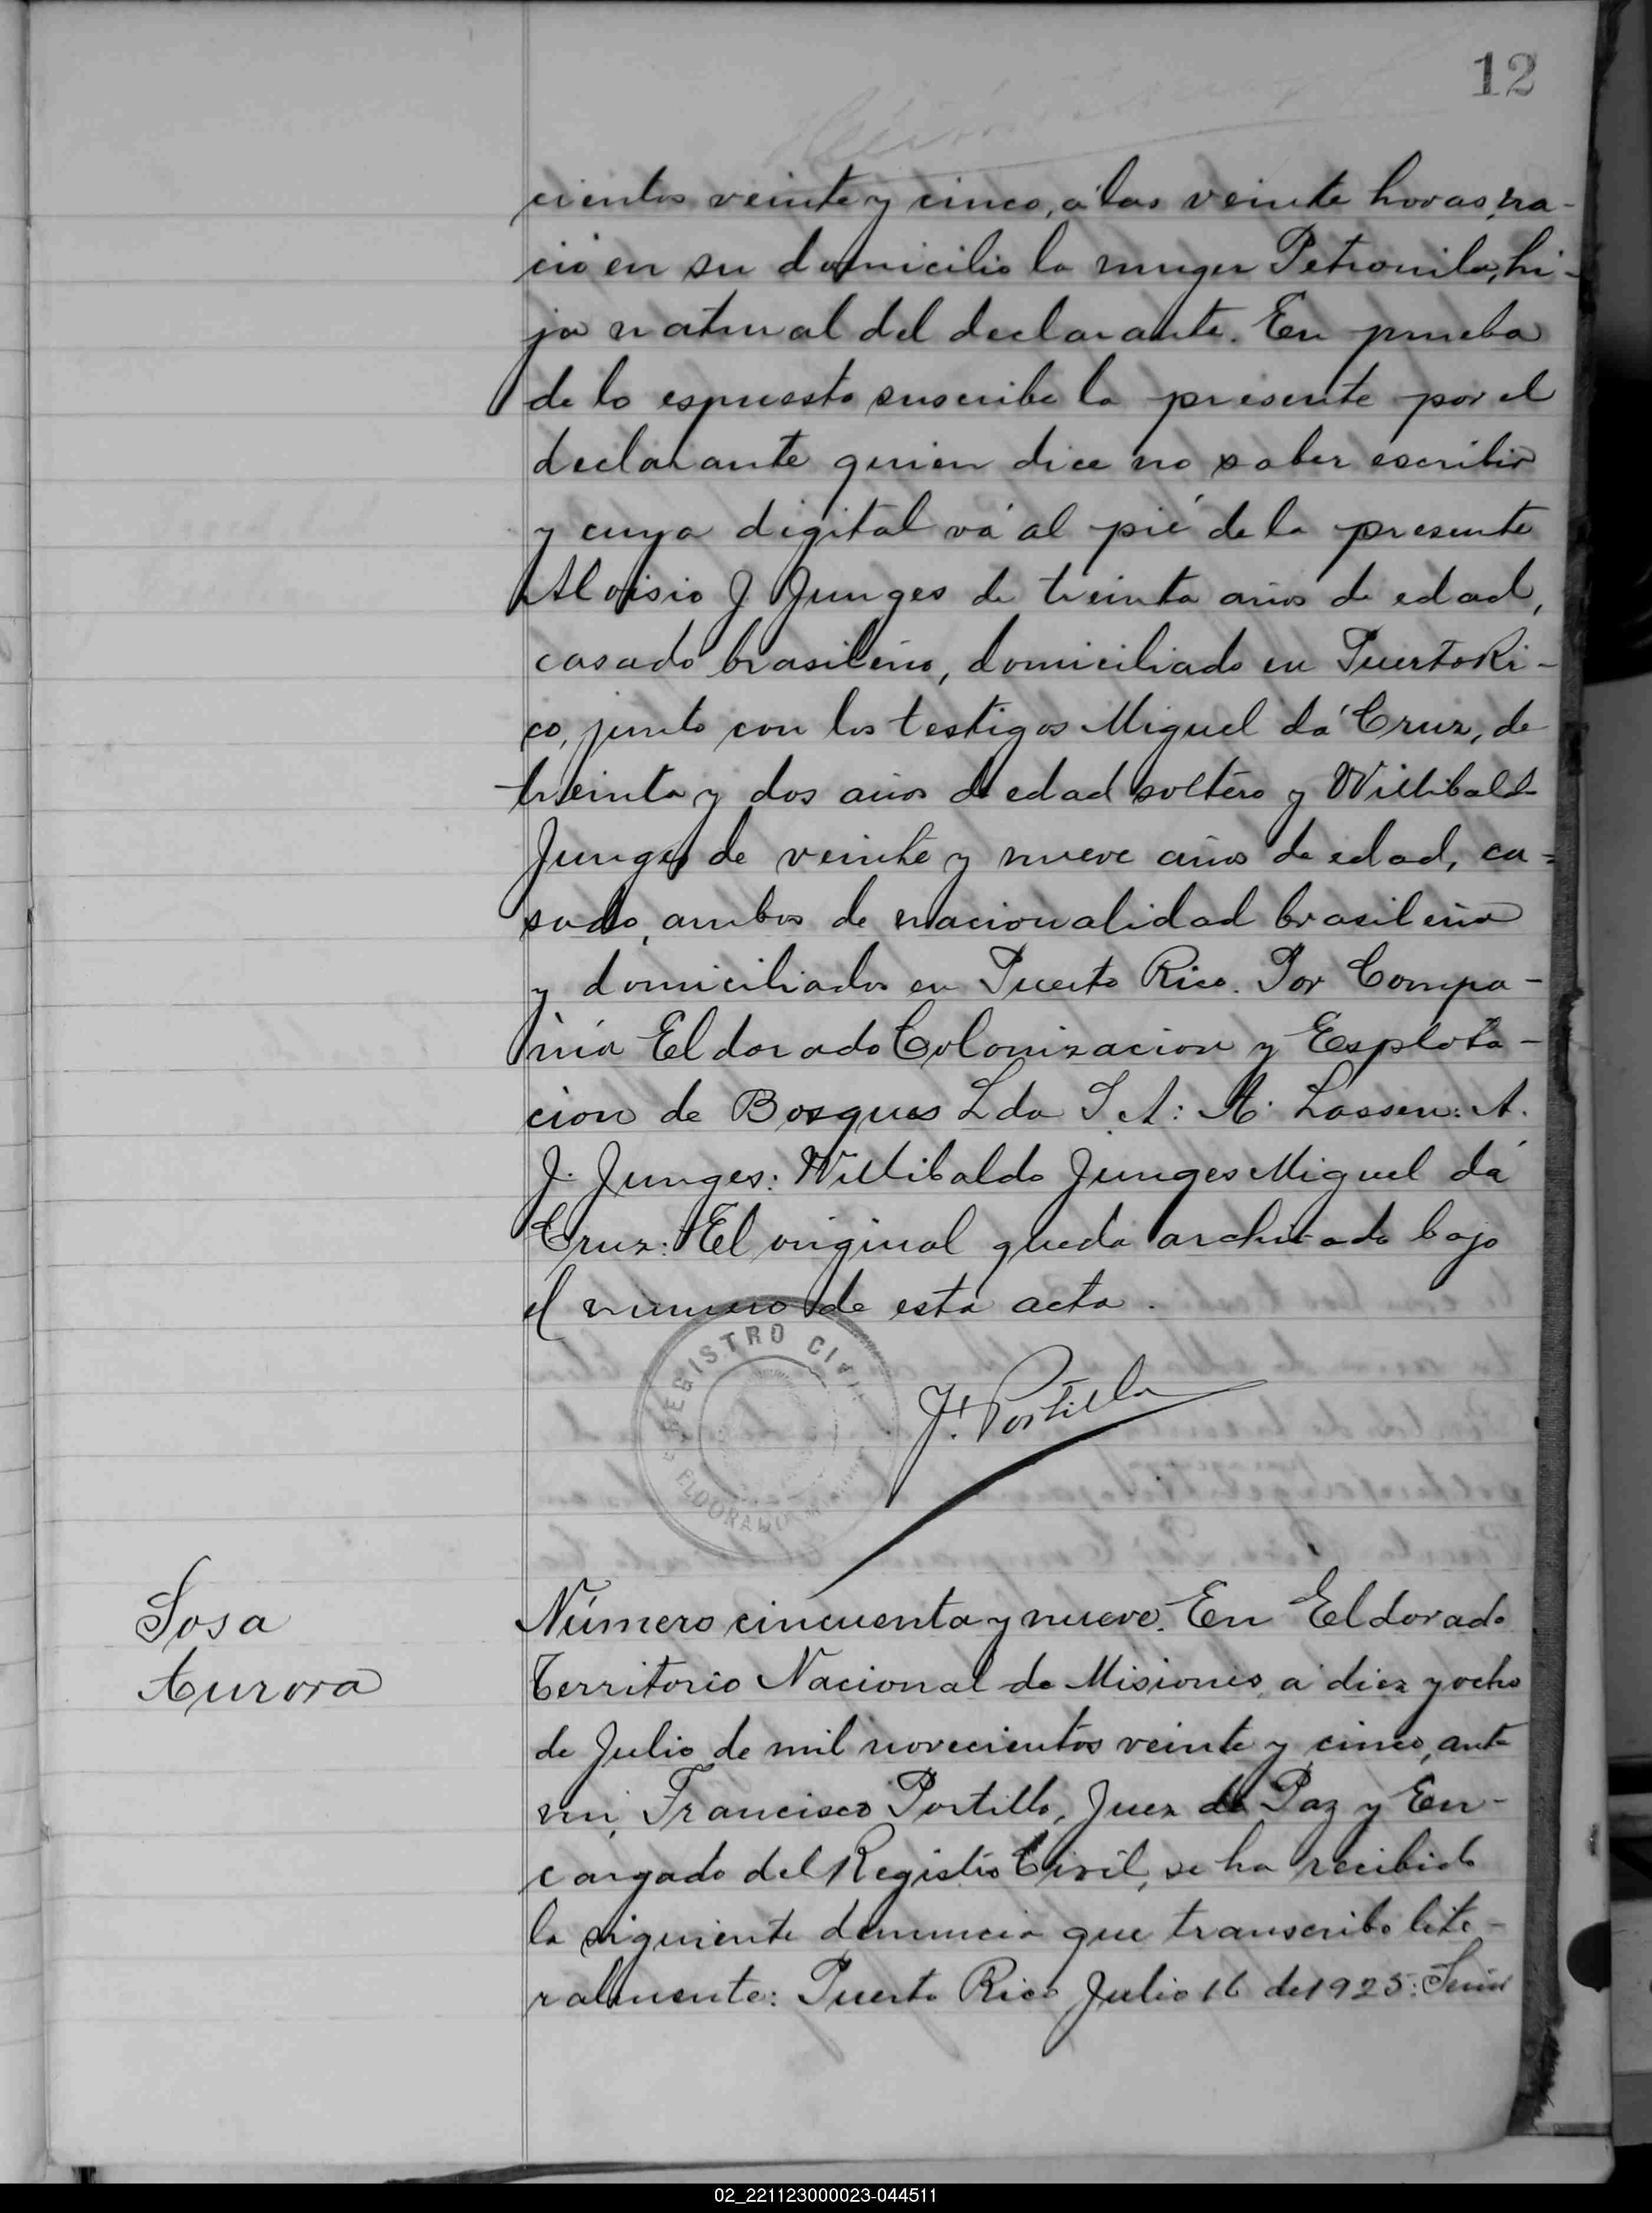 12
cientos veinte y cinco, a las veinte horas, na-
ció en su domicilio la muger Petronila, hi-
ja natural del declarante. En prueba
de lo espuesto suscribe la presente por el
declarante quien dice no saber escribir
y cuya digital vá al pié de la presente
Aloisio J Junges de treinta años de edad,
casado brasileño, domiciliado en Puerto Ri-
co, junto con los testigos Miguel dá Cruz, de
treinta y dos años de edad soltero y Willibaldo
Junges de veinte y nueve años de edad, ca=
sado, ambos de nacionalidad brasileña
y domiciliados en Puerto Rico. Por Compa-
ñia Eldorado Colonizacion y Esplota-
cion de Bosques Lda S. A: A. Lassen: A.
J. Junges: Willibaldo Junges Miguel dá
Cruz: El original queda archivado bajo
el numero de esta acta.
REGISTRO CIVIL
ELDORADO
F. Portillo
Sosa
Aurora
Número cincuenta y nueve. En Eldorado
Territorio Nacional de Misiones, a diez y ocho
de Julio de mil novecientos veinte y cinco, ante
mi, Francisco Portillo, Juez de Paz y En-
cargado del Registro Civil, se ha recibido
la siguiente denuncia que transcribo lite-
ralmente: Puerto Rico Julio 16 de 1925: Señor
02_221123000023-044511